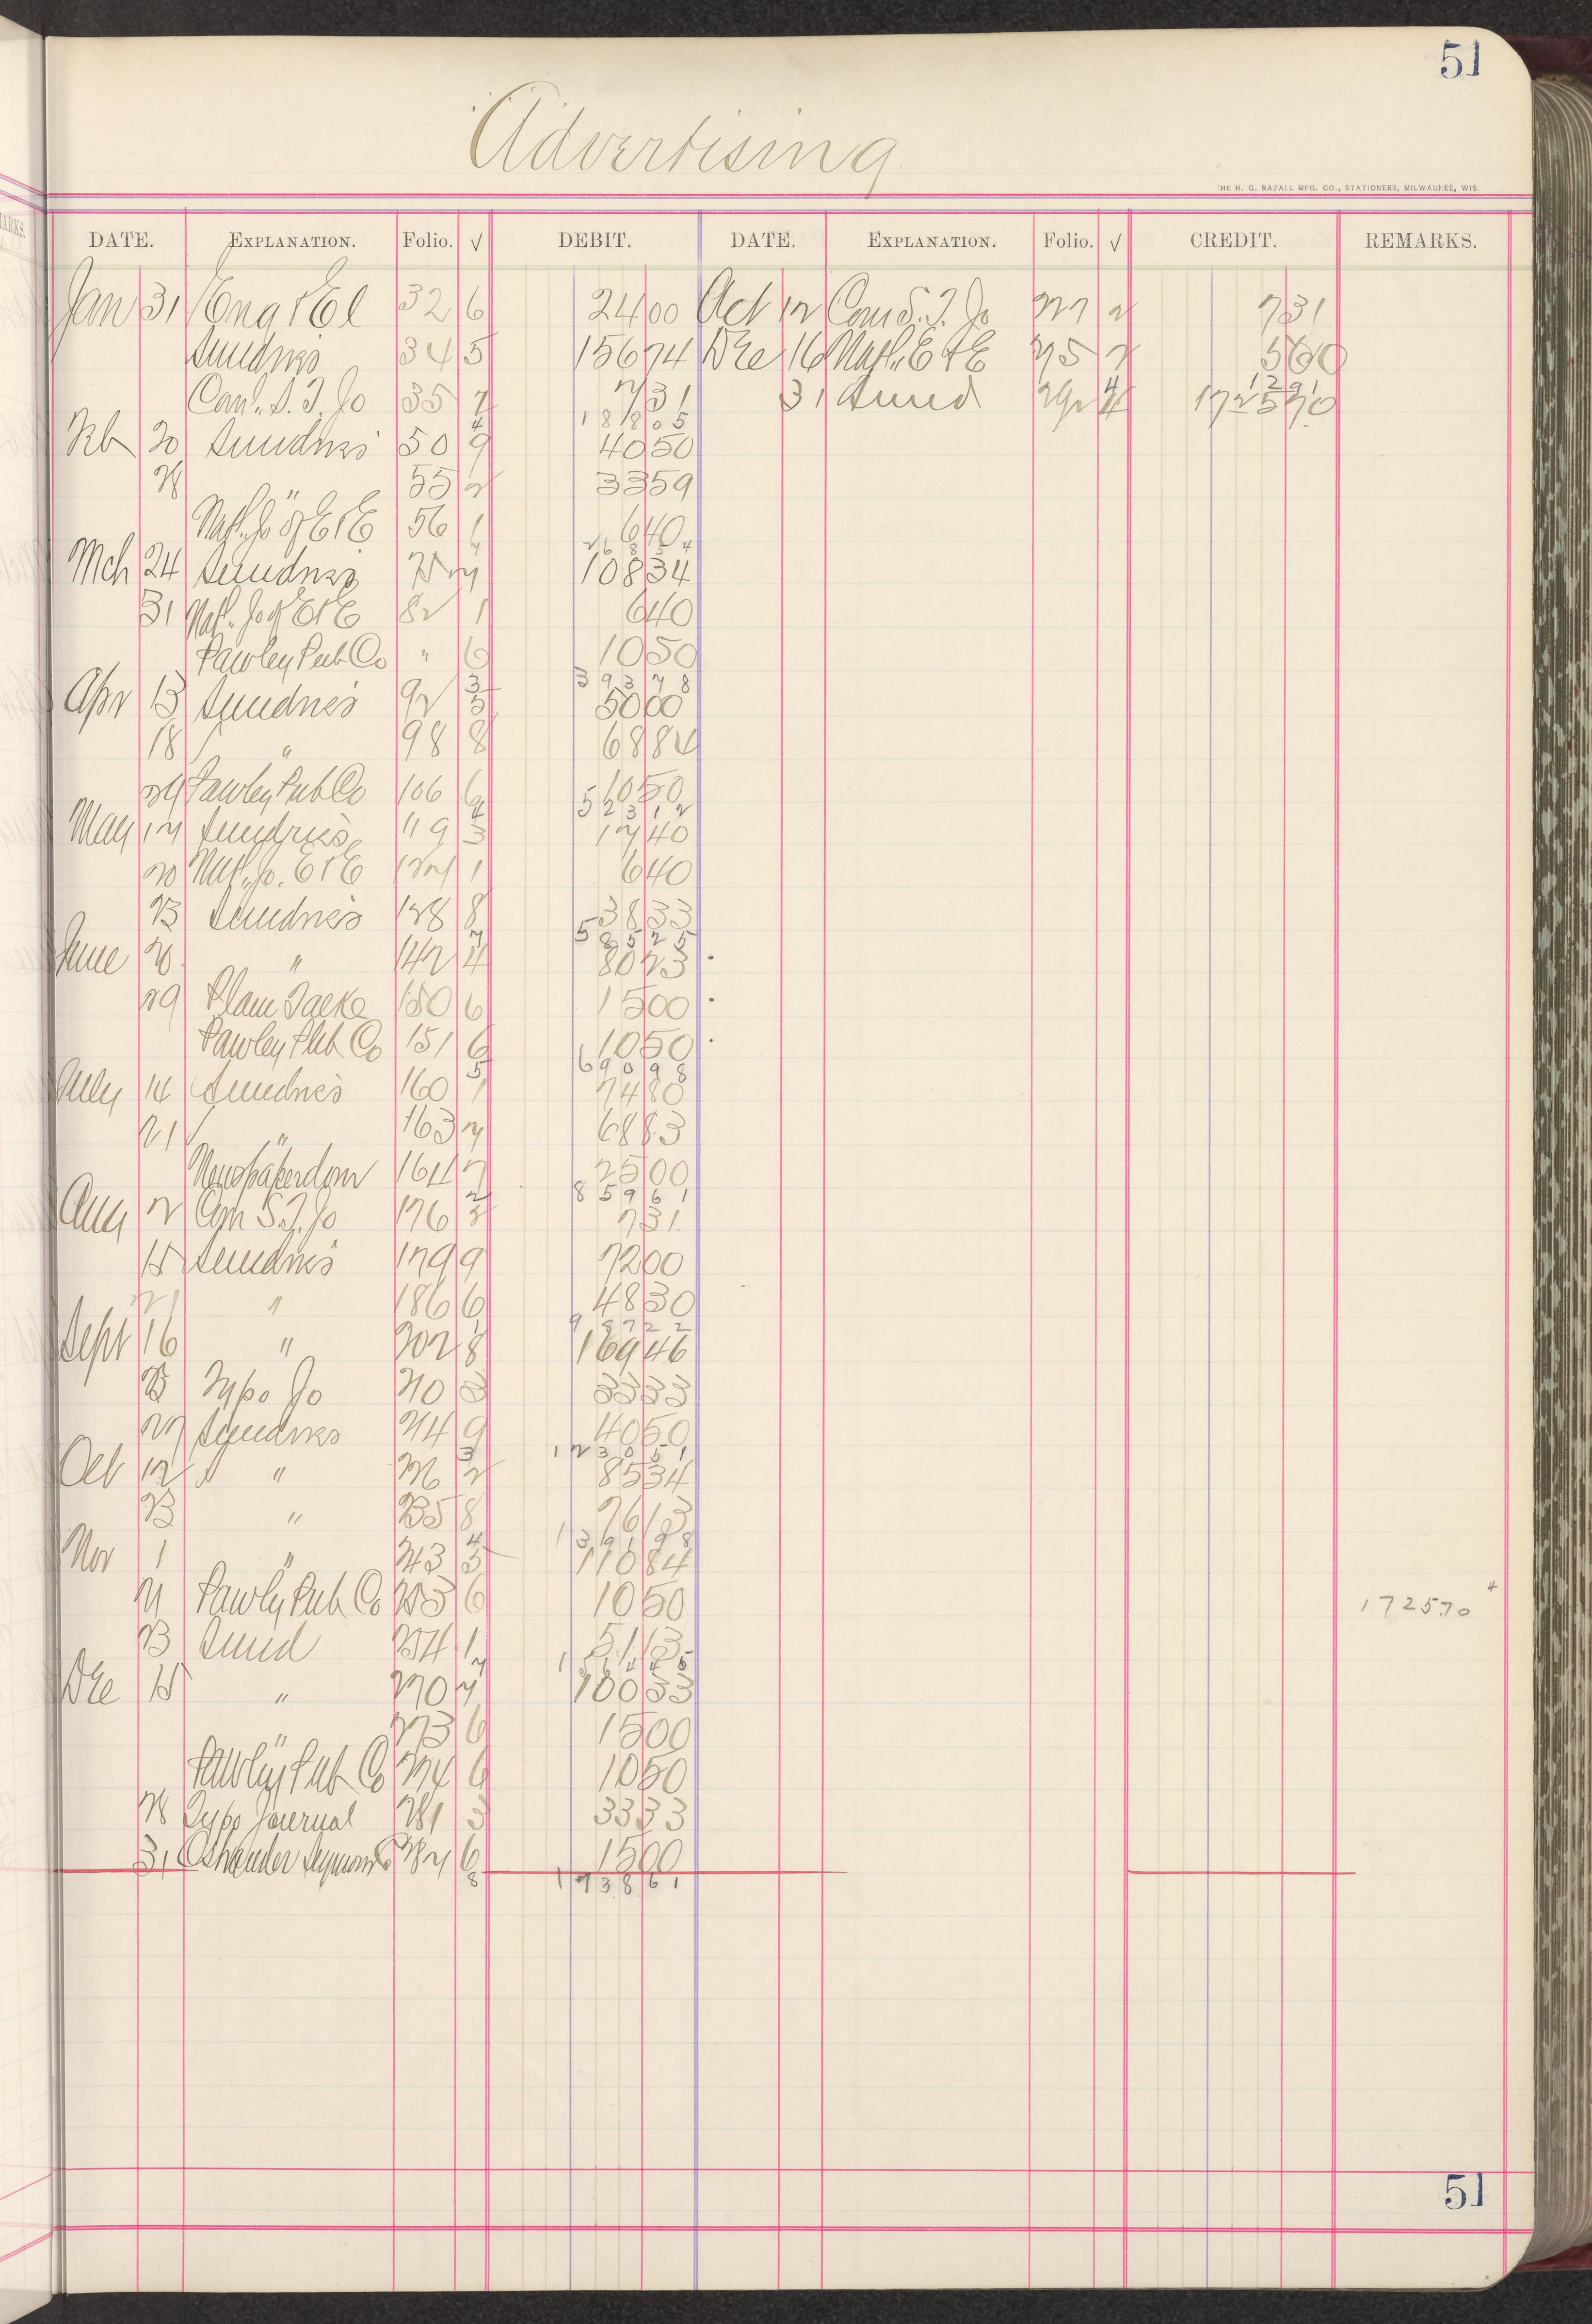 51
Advertising
THE H. G. RAZALL MFG. CO., STATIONERS, MILWAUKEE, WIS.
DATE. EXPLANATION. Folio. √ DEBIT. DATE. EXPLANATION. Folio. √ CREDIT. REMARKS.
Jan 31 Eng & El 32 6 24 00 Oct 12 Can. S. T. Jo 227 2 7 31
Sundries 34 5 156 74 Dec 16 Nat. E & E 275 7 5 60
Can. S. T. Jo 35 7 31 31 Sund 292 1725 70
188 05
Feb 20 Sundries 50 9 40 50
28 " 55 2 33 59
Nat. Jo of E & E 56 1 6 40
268 54
Mch 24 Sundries 108 34
31 Nat. Jo of E & E 82 1 6 40
Pawley Pub Co " 6 10 50
393 78
Apr 13 Sundries 92 50 00
18 " 98 8 68 84
29 Pawley Pub Co 106 6 10 50
523 12
May 14 Sundries 119 3 17 40
20 Nat. Jo. E & E 1 6 40
23 Sundries 128 8 38 33
585 25
June 20 " 142 80 23
29 Plain Talk 150 6 15 00
Pawley Pub Co 151 6 10 50
690 98
July 14 Sundries 160 74 80
21 " 163 68 83
Newspaperdom 164 25 00
859 61
Aug 2 Can S. T. Jo 176 7 31
15 Sundries 179 9 72 00
21 " 186 6 48 30
987 22
Sept 16 " 202 8 169 46
23 Typo Jo 210 3 33 33
27 Sundries 214 9 40 50
1230 51
Oct 12 " 226 2 85 34
23 " 235 8 76 13
1391 98
Nov 1 " 243 110 84
21 Pawley Pub Co 253 6 10 50
172570 4
23 Sund 254 1 51 13
Dec 15 " 270 100 53
" 273 6 15 00
Pawley Pub Co 274 6 10 50
28 Typo Journal 281 3 33 33
31 6 15 00
1738 61
51